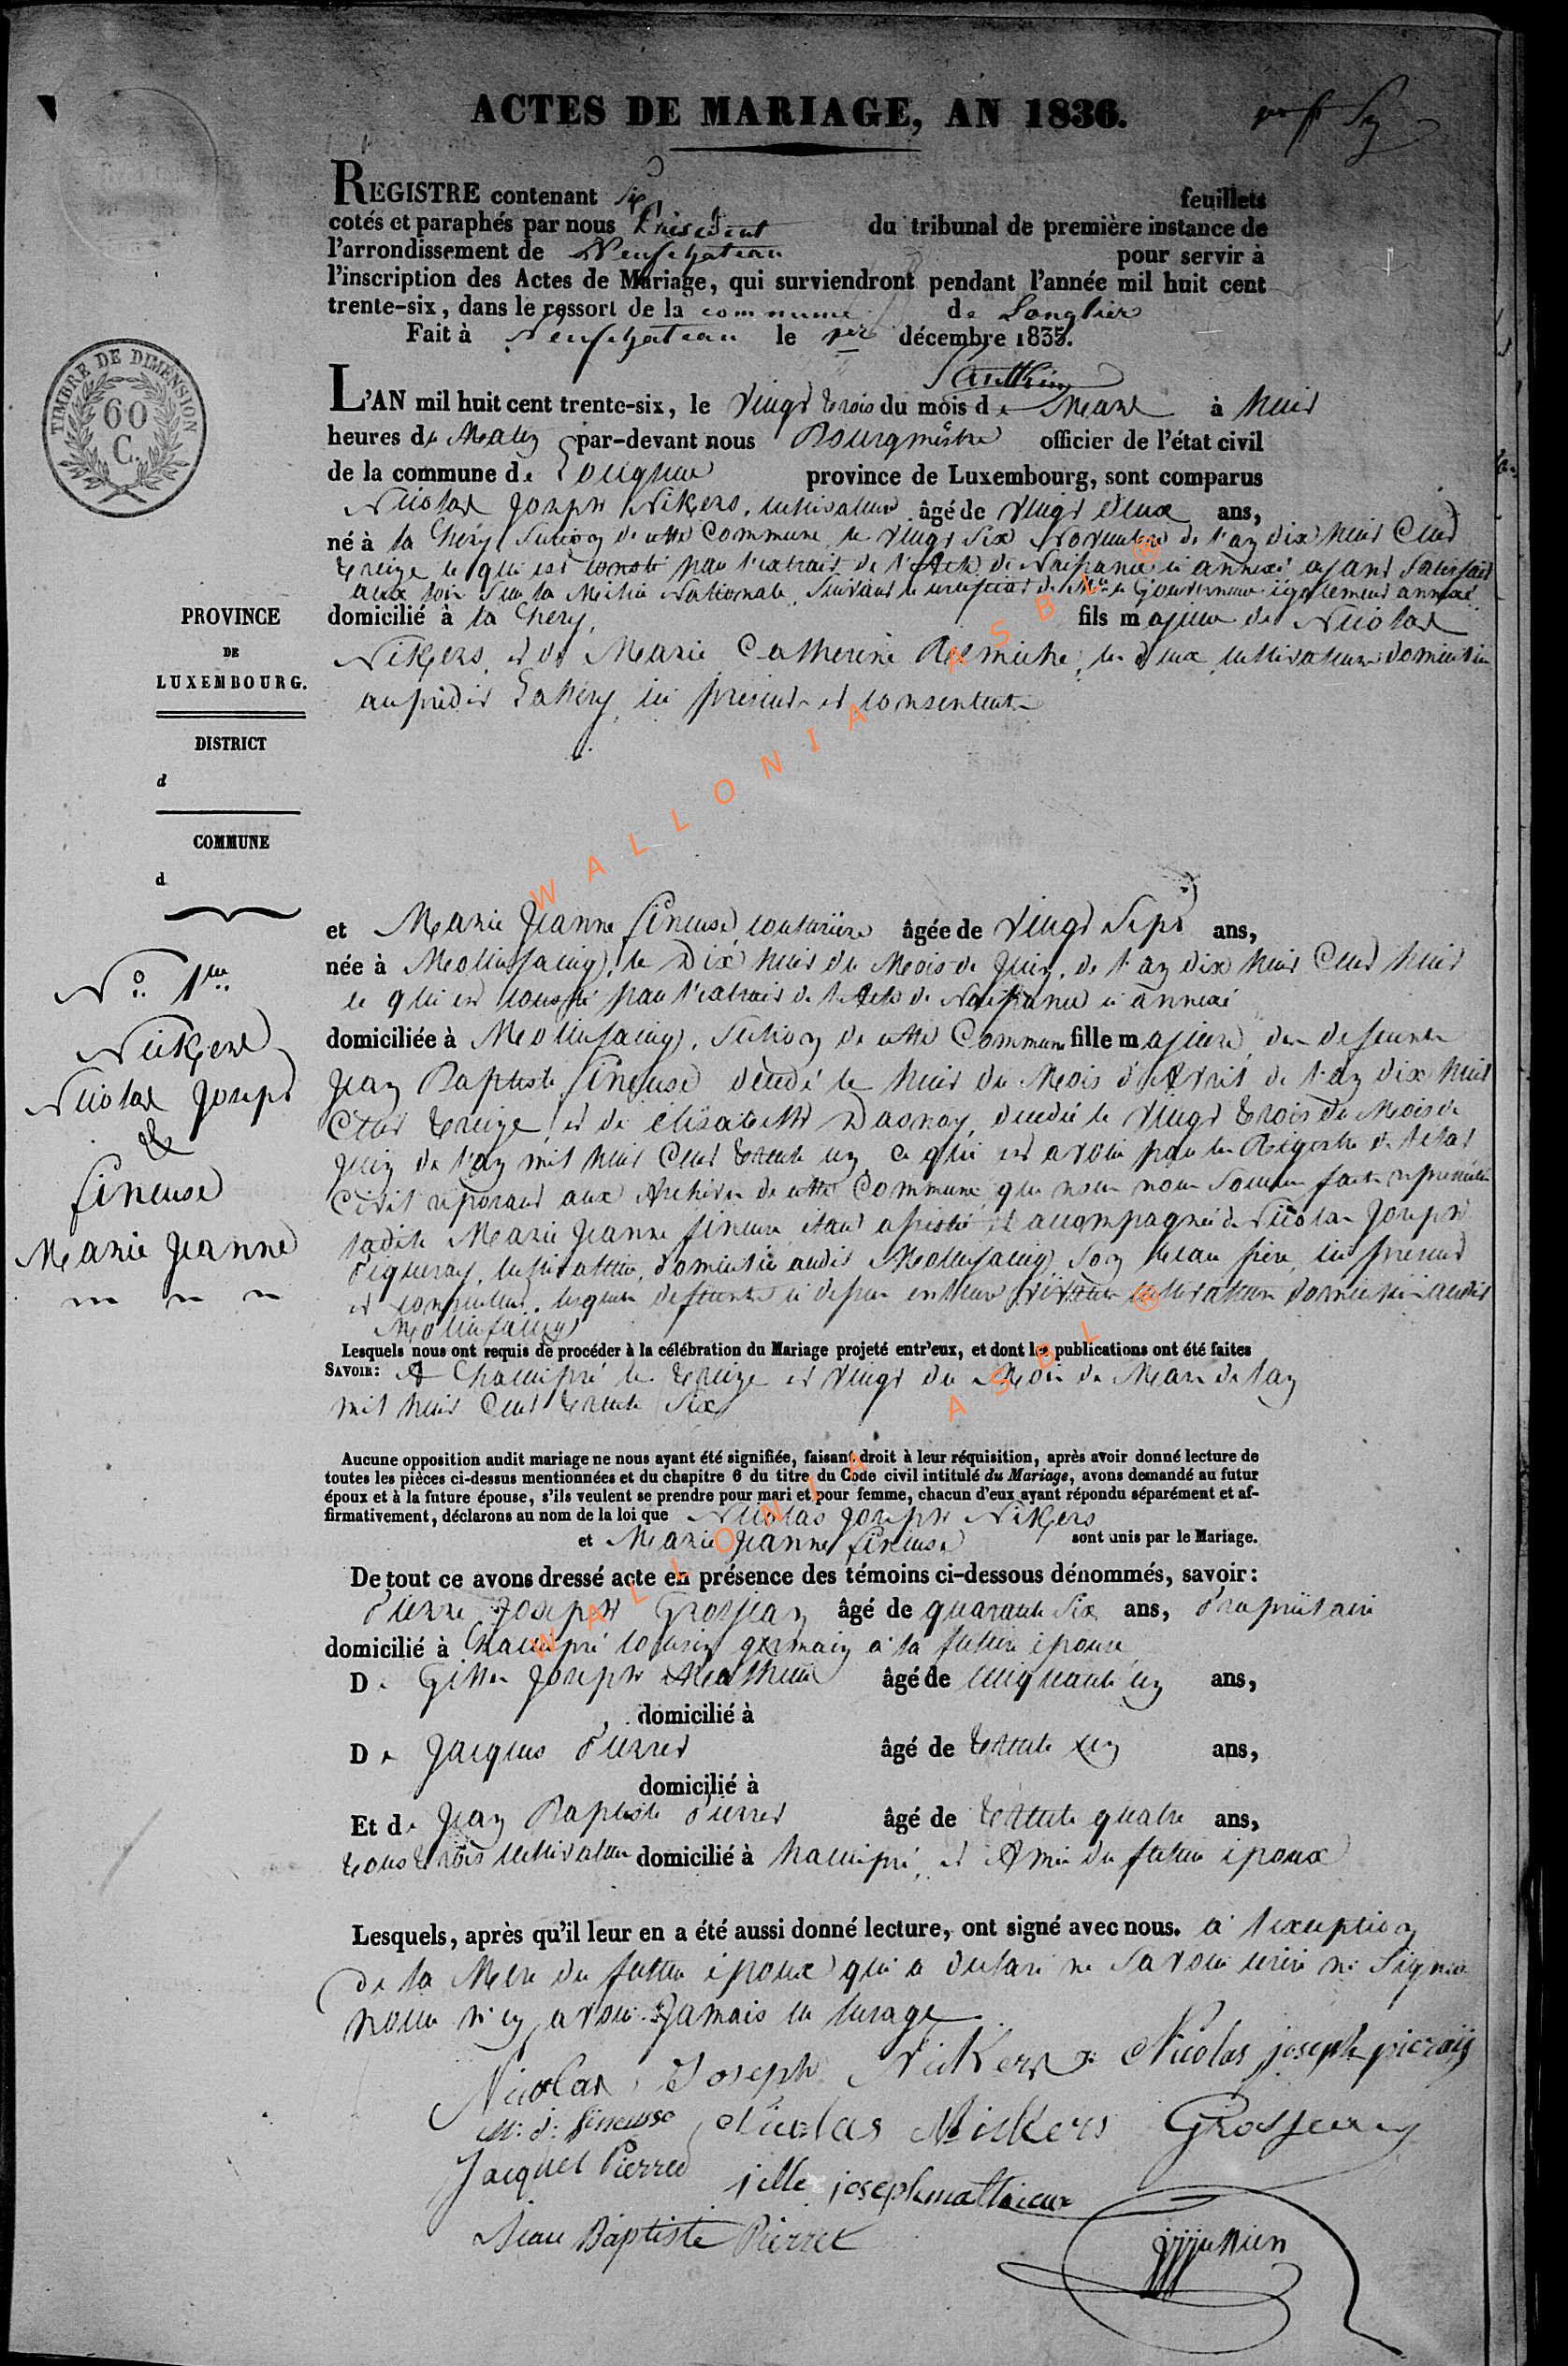 ACTES DE MARIAGE, AN 1836.
REGISTRE contenant six feuillets
cotés et paraphés par nous Président du tribunal de première instance de
l'arrondissement de Neufchateau pour servir à
l'inscription des Actes de Mariage, qui surviendront pendant l'année mil huit cent
trente-six, dans le ressort de la commune de Longlier
Fait à Neufchateau le 1er décembre 1835.
TIMBRE DE DIMENSION
60
C.
L'AN mil huit cent trente-six, le Vingt trois du mois de Mars à huit
heures du Matin par-devant nous Bourgmestre officier de l'état civil
de la commune de province de Luxembourg, sont comparus
Nicolas Joseph Nikers, cultivateur âgé de Vingt deux ans,
né à la Chery Section de cette Commune le Vingt Six Novembre de l'an dix huit Cent
treize ce qui est constaté par l'extrait de l'Acte de Naissance ci annexé ayant Satisfait
aux loix Sur la Milice Nationale, Suivant le certificat de Mr le Gouverneur également annexé
PROVINCE
DE
LUXEMBOURG.
DISTRICT
d
COMMUNE
d
domicilié à la Chery, fils majeur de Nicolas
Nikers, et de Marie Catherine les deux cultivateurs domiciliés
au prédit Lahery, ici présents et consentents
et Marie Jeanne fineuse, couturière âgée de Vingt Sept ans,
née à Molinfaing, le Dix huit du Mois de Juin, de l'an dix huit Cent huit
ce qui est constaté par l'extrait de l'Acte de Naissance ci annexé
N° 1er
Nickers
Nicolas Joseph
&
fineuse
Marie Jeanne
domiciliée à Molinfaing, Section de cette Commune fille majeure, des defeunts
Jean Baptiste fineuse décédé le huit du Mois d'Avril de l'an dix huit
Cent treize, et de élisabeth Dasnoy, décédée le Vingt trois du Mois de
Juin de l'an mil huit Cent trente un, ce qui est avoué par les Régistre de l'état
Civil réposant aux Archives de cette Commune, que nous nous Sommes fait représenter
ladite Marie Jeanne fineuse étant assisté et accompagnée de Nicolas Joseph
Piqueray, cultivateur, domicilié audit Molinfaing Son beau frère, ici présent
et consentent, lesquels defeunts ci dessus en leur vivant cultivateurs domiciliés audit
Molinfaing
Lesquels nous ont requis de procéder à la célébration du Mariage projeté entr'eux, et dont les publications ont été faites
SAVOIR: A hamipré le treize et Vingt du Mois de Mars de l'an
mil huit Cent trente Six
Aucune opposition audit mariage ne nous ayant été signifiée, faisant droit à leur réquisition, après avoir donné lecture de
toutes les pièces ci-dessus mentionnées et du chapitre 6 du titre du Code civil intitulé du Mariage, avons demandé au futur
époux et à la future épouse, s'ils veulent se prendre pour mari et pour femme, chacun d'eux ayant répondu séparément et af-
firmativement, déclarons au nom de la loi que Nicolas Joseph Nikers
et Marie Jeanne fineuse sont unis par le Mariage.
De tout ce avons dressé acte en présence des témoins ci-dessous dénommés, savoir:
Pierre Joseph Grosjean âgé de quarante Six ans, Propriétaire
domicilié à hamipré cousin germain à la future épouse
De Gilles Joseph Mathieu âgé de cinquante un ans,
domicilié à
De Jacques Pierret âgé de trente un ans,
domicilié à
Et de Jean Baptiste Pierret âgé de trente quatre ans,
tous trois cultivateurs domicilié à hamipré, et Amis du futur époux
Lesquels, après qu'il leur en a été aussi donné lecture, ont signé avec nous. à l'exception
de la Mère du futur époux qui a déclaré ne Savoir écrire ni Signer
pour n'en avoir Jamais eu lusage
Nicolas Joseph Nickers Nicolas joseph pieraij
M: J: fineusse Nicolas Nickers Grosjean
Jacques Pierred jille joseph mathieux
Jean Baptiste Pierret
WALLONIA ASBL ®
WALLONIA ASBL ®